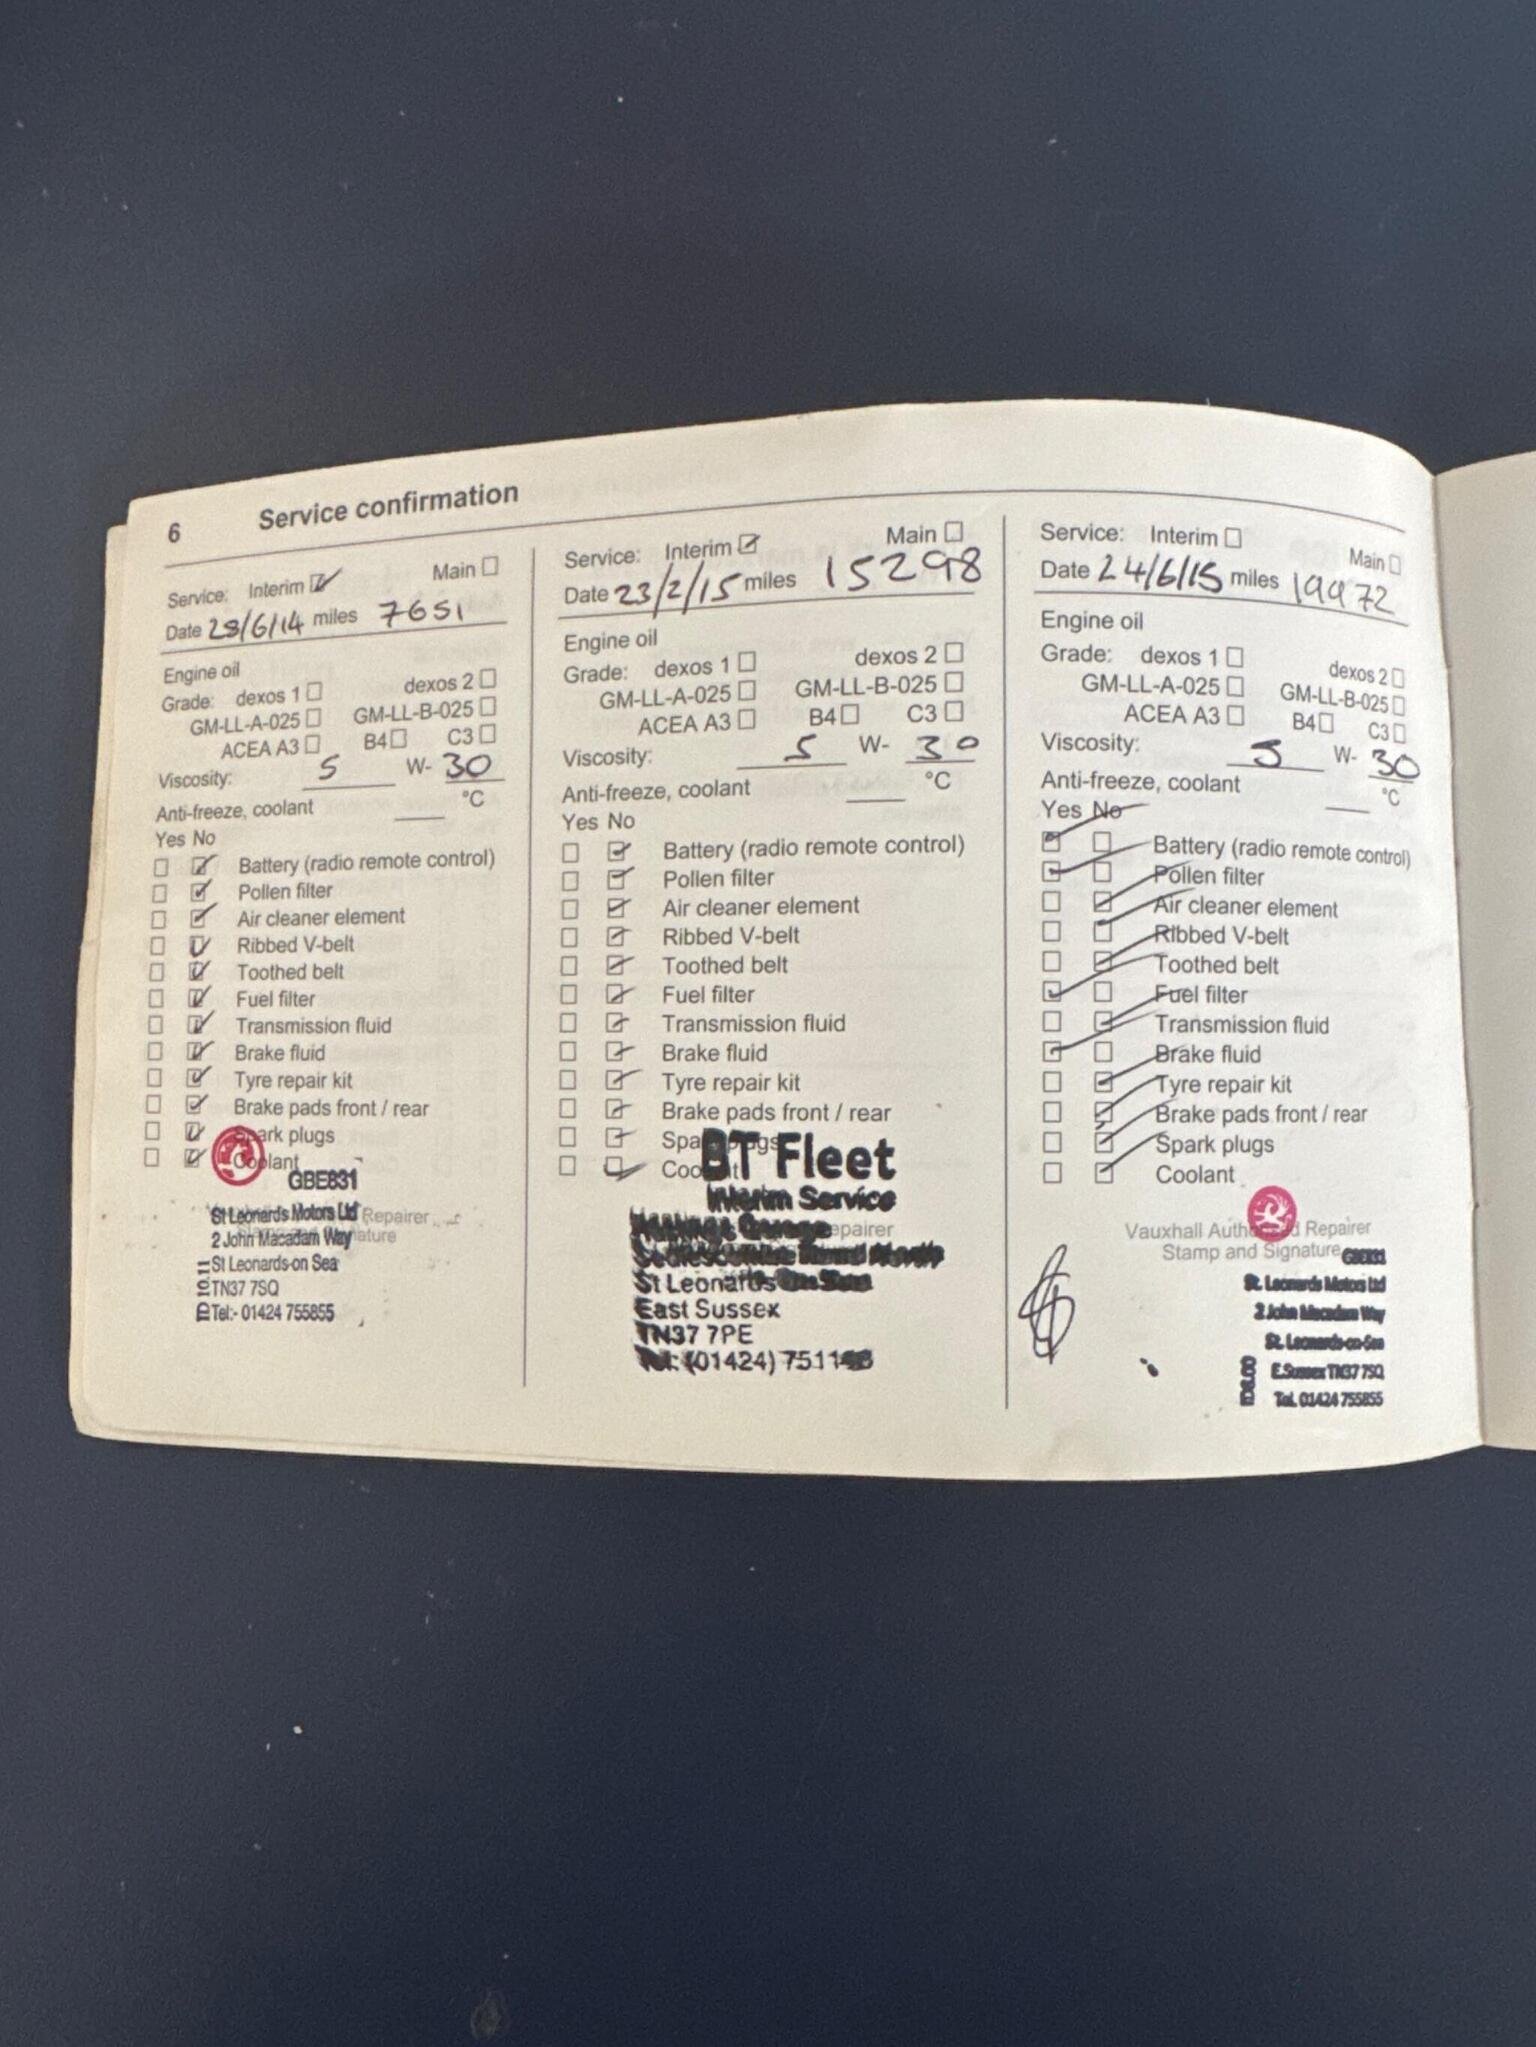 6 Service confirmation
Service: Interim Main
Date 28/6/14 miles 7651
Engine oil
Grade: dexos 1 dexos 2
GM-LL-A-025 GM-LL-B-025
ACEA A3 B4 C3
Viscosity: 5 W- 30
Anti-freeze, coolant °C
Yes No
Battery (radio remote control)
Pollen filter
Air cleaner element
Ribbed V-belt
Toothed belt
Fuel filter
Transmission fluid
Brake fluid
Tyre repair kit
Brake pads front / rear
Spark plugs
Coolant
GBE831
St Leonards Motors Ltd Repairer
2 John Macadam Way
St Leonards-on Sea
TN37 7SQ
Tel:- 01424 755855
ID 10.11
Service: Interim Main
Date 23/2/15 miles 15298
Engine oil
Grade: dexos 1 dexos 2
GM-LL-A-025 GM-LL-B-025
ACEA A3 B4 C3
Viscosity: 5 W- 30
Anti-freeze, coolant °C
Yes No
Battery (radio remote control)
Pollen filter
Air cleaner element
Ribbed V-belt
Toothed belt
Fuel filter
Transmission fluid
Brake fluid
Tyre repair kit
Brake pads front / rear
Spark plugs
Coolant
BT Fleet
Interim Service
Hastings Garage
Sedlescombe Road North
St Leonards On Sea
East Sussex
TN37 7PE
Tel: (01424)
Service: Interim Main
Date 24/6/15 miles 19972
Engine oil
Grade: dexos 1 dexos 2
GM-LL-A-025 GM-LL-B-025
ACEA A3 B4 C3
Viscosity: 5 W- 30
Anti-freeze, coolant °C
Yes No
Battery (radio remote control)
Pollen filter
Air cleaner element
Ribbed V-belt
Toothed belt
Fuel filter
Transmission fluid
Brake fluid
Tyre repair kit
Brake pads front / rear
Spark plugs
Coolant
Vauxhall Authorised Repairer
Stamp and Signature
GBE831
St. Leonards Motors Ltd
2 John Macadam Way
St. Leonards-on-Sea
E.Sussex TN37 7SQ
Tel. 01424 755855